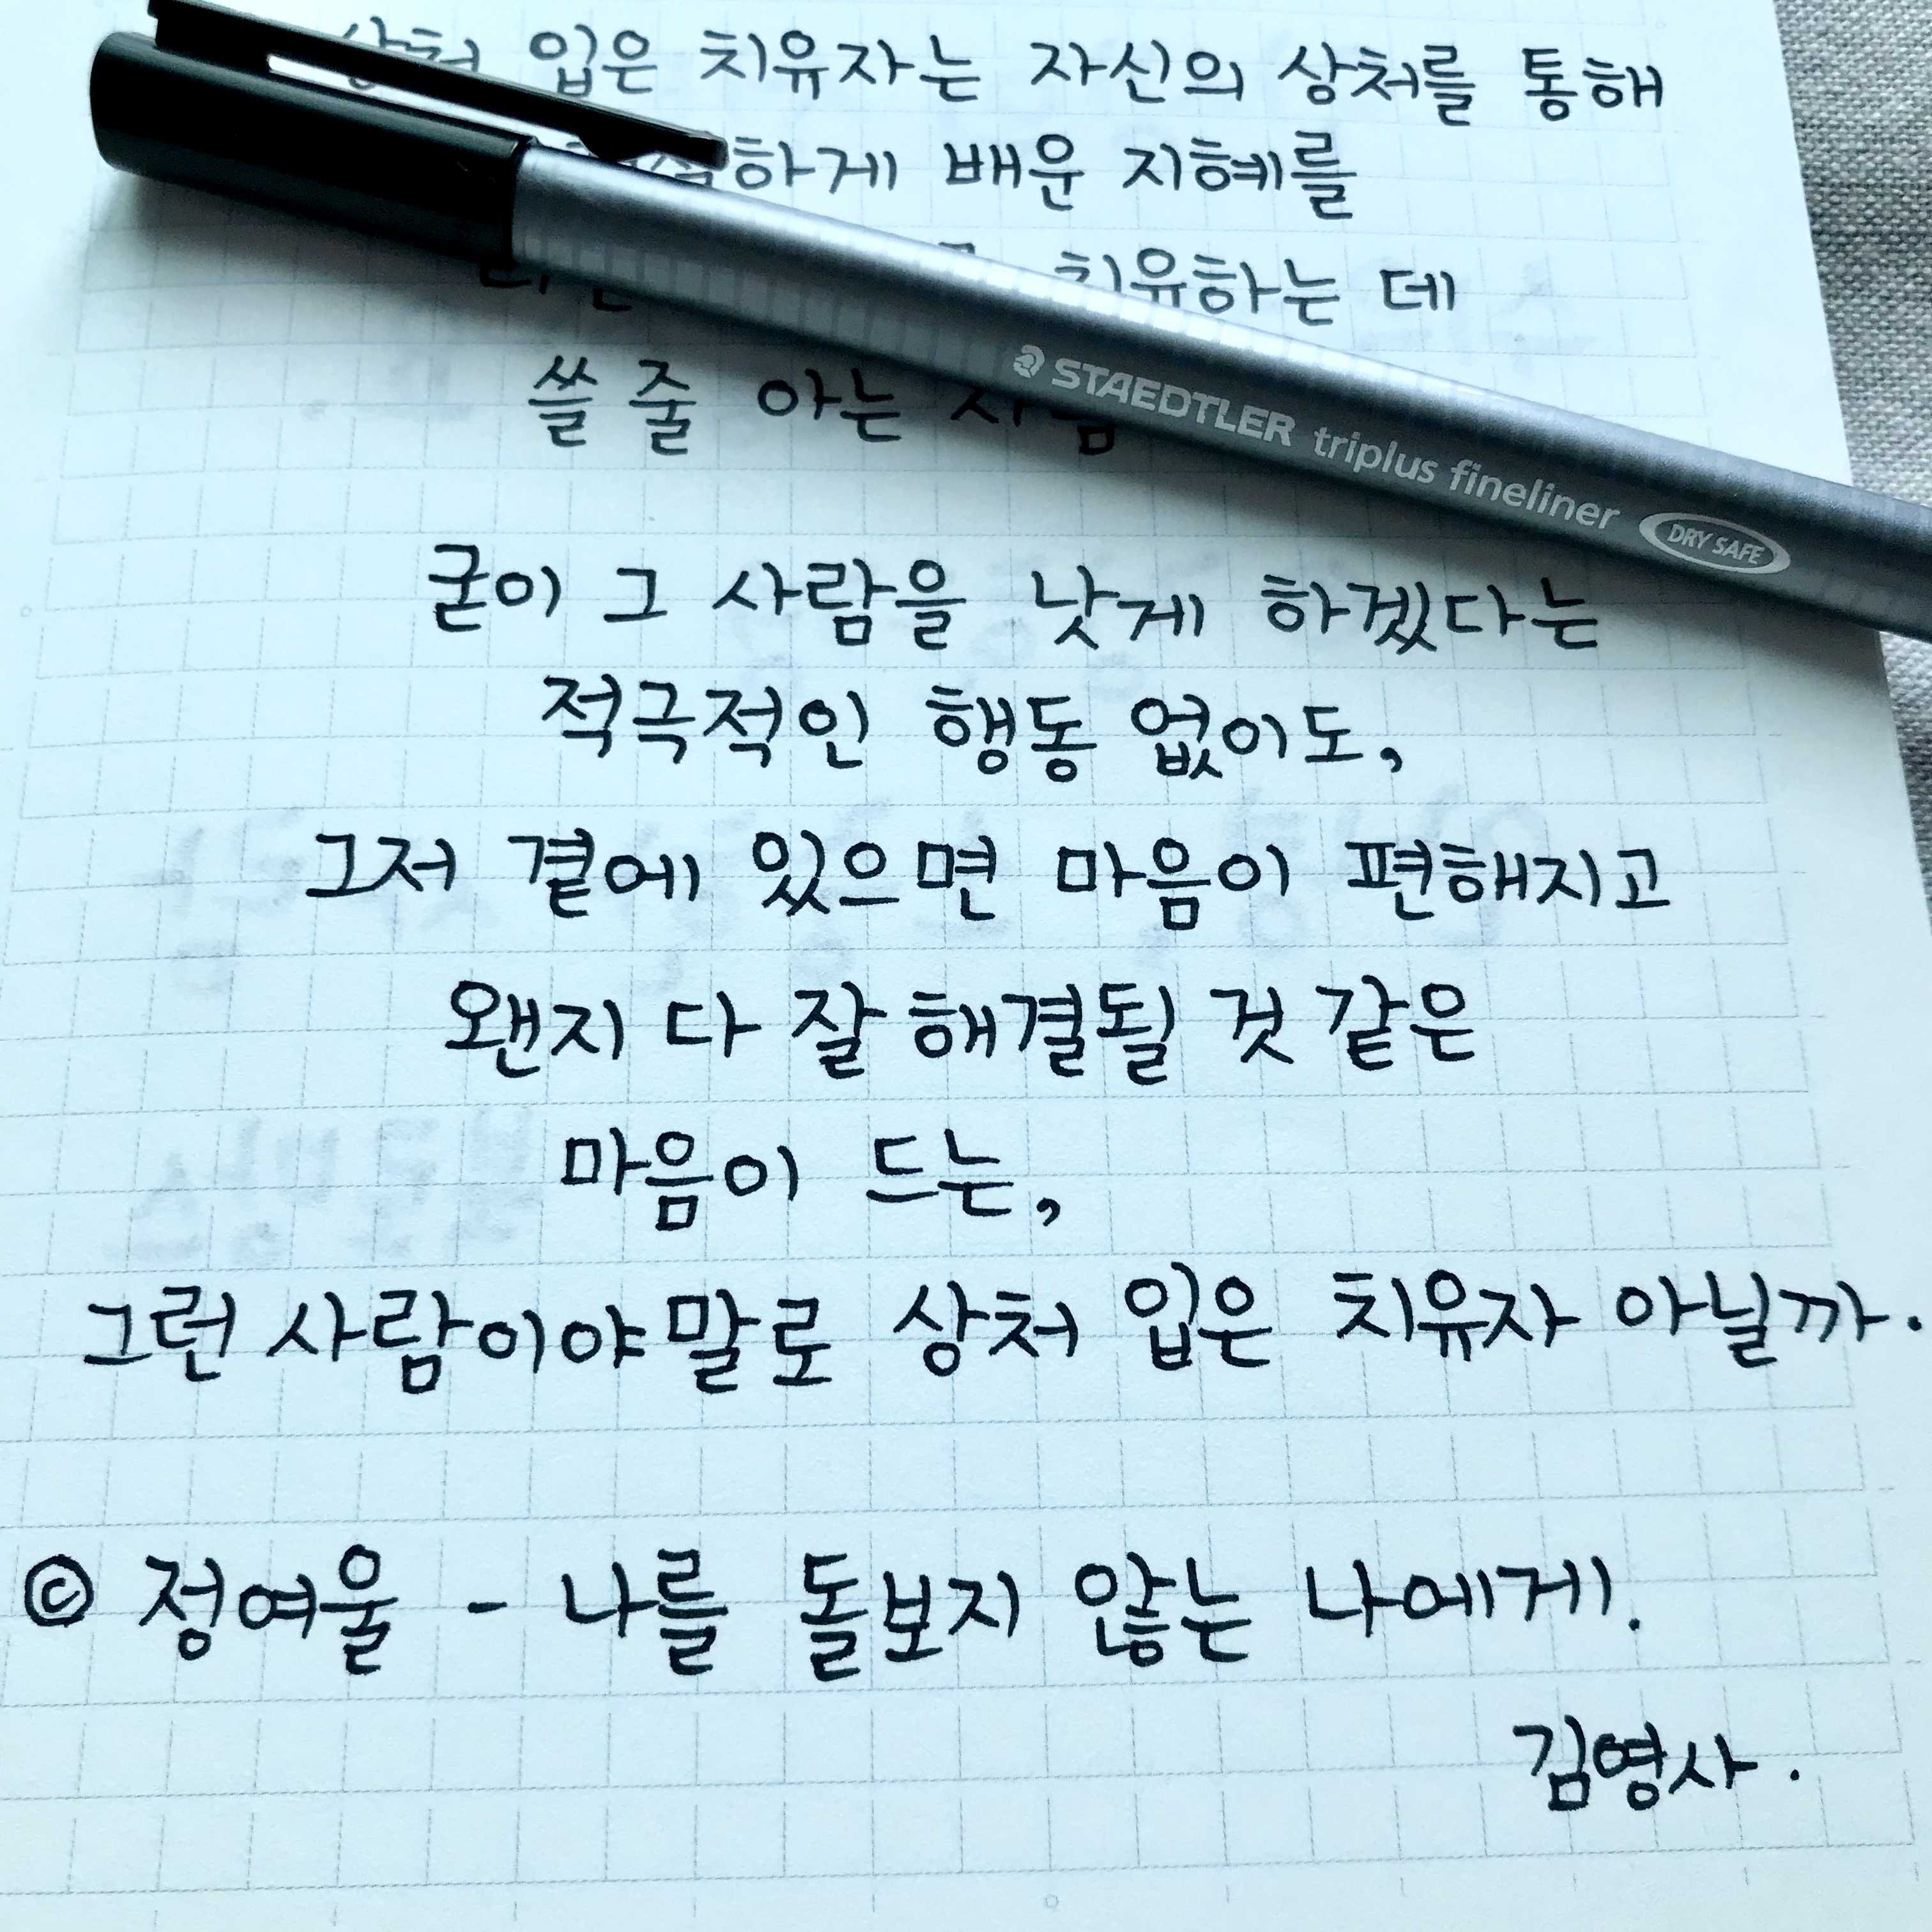 입은 치유자는 자신의 상처를 통해
배운 지혜를
치유하는 데
쓸 줄 아는
STAEDTLER triplus fineliner DRY SAFE
굳이 그 사람을 낫게 하겠다는
적극적인 행동 없이도,
그저 곁에 있으면 마음이 편해지고
왠지 다 잘 해결될 것 같은
마음이 드는,
그런 사람이야말로 상처 입은 치유자 아닐까.
© 정여울 - 나를 돌보지 않는 나에게.
김영사.